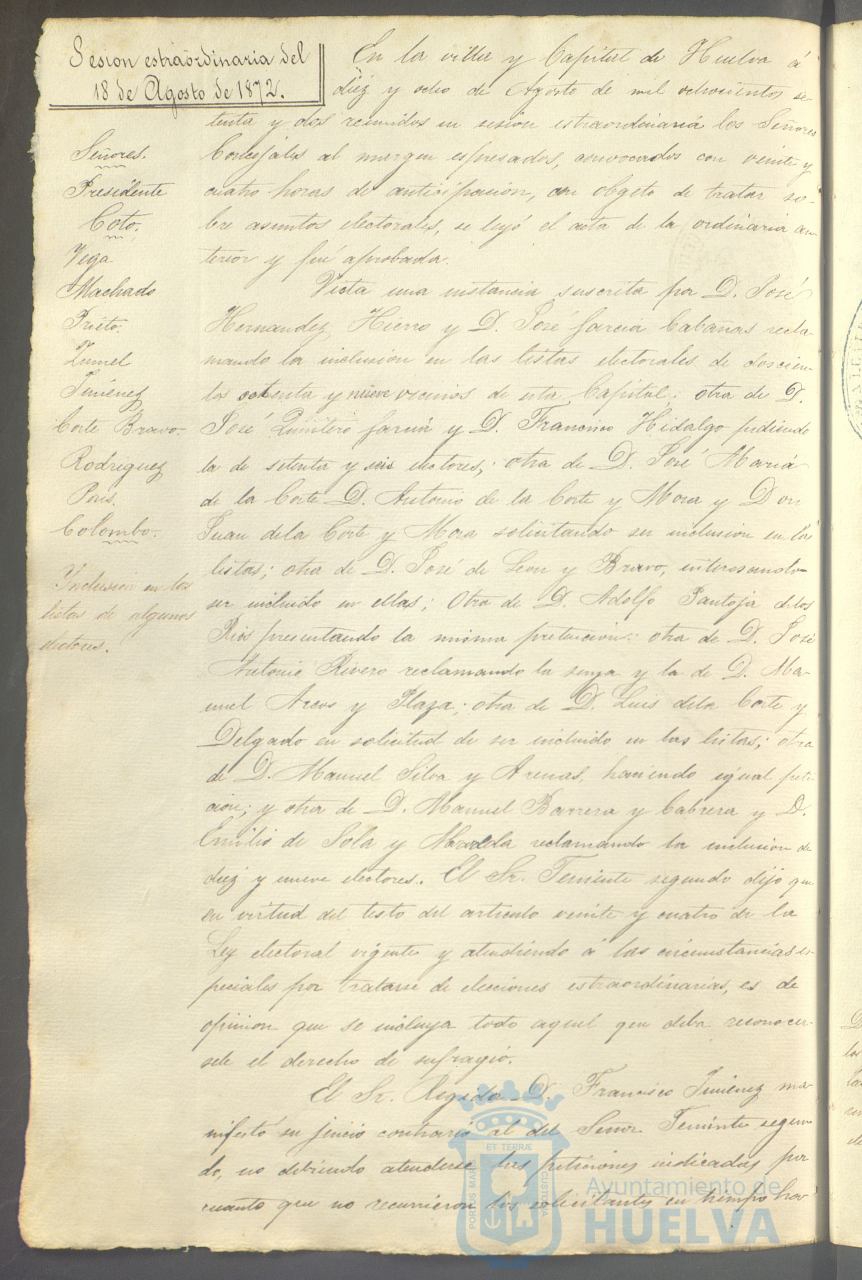 Sesion estraordinaria del
18 de Agosto de 1872.
Señores.
Presidente
Coto.
Vega
Machado
Prieto.
Zumel
Jiménez
Corte Bravo.
Rodriguez
Pons.
Colombo.
Ynclusion en las
listas de algunos
electores.
En la villa y Capital de Huelva á
diez y ocho de Agosto de mil ochocientos se-
tenta y dos reunidos en sesion estraordinaria los Señores
Concejales al margen espresados, convocados con veinte y
cuatro horas de anticipacion, con objeto de tratar so-
bre asuntos electorales, se leyó el acta de la ordinaria an-
terior y fué aprobada.
Vista una instancia suscrita por D. José
Hernandez Hierro y D. José Garcia Cabañas recla-
mando la inclusion en las listas electorales de doscien-
tos setenta y nueve vecinos de esta Capital; otra de D.
José Quintero Garcia y D. Francisco Hidalgo pidiendo
la de setenta y seis electores; otra de D. José Maria
de la Corte D. Antonio de la Corte y Mora y Don
Juan de la Corte y Mora solicitando su inclusion en las
listas; otra de D. José de Leon y Bravo, interesando
ser incluido en ellas; Otra de D. Adolfo Pantoja de los
Rios presentando la misma peticion: otra de D. José
Antonio Rivero reclamando la suya y la de D. Ma-
nuel Arcos y Plaza; otra de D. Luis de la Corte y
Delgado en solicitud de ser incluido en las listas; otra
de D. Manuel Silva y Arenas, haciendo igual peti-
cion; y otra de D. Manuel Barrera y Cabrera y D.
Emilio de Sola y reclamando la inclusion de
diez y nueve electores. El Sr. Teniente segundo dijo que
en virtud del testo del articulo veinte y cuatro de la
Ley electoral vigente y atendiendo á las circunstancias es-
peciales por tratarse de elecciones estraordinarias, es de
opinion que se incluya todo aquel que deba reconocer-
sele el derecho de sufragio.
El Sr. Regidor D. Francisco Jimenez ma-
nifestó su juicio contrario al del Señor Teniente segun-
do, no debiendo atenderse las peticiones indicadas por
cuanto que no recurrieron los solicitantes en tiempo
PORTUS MARIS ET TERRÆ CUSTODIA
Ayuntamiento de
HUELVA